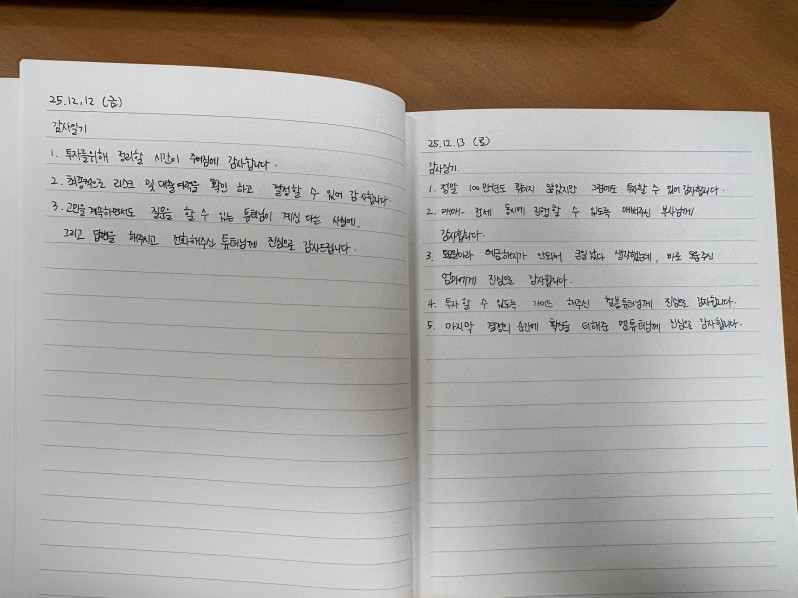 25.12.12 (금)
감사일기
1. 투자를위해 정리할 시간이 주어짐에 감사합니다.
2. 최종적으로 리스크 및 대출여력을 확인 하고 결정할 수 있어 감사합니다.
3. 고민을 계속하면서도 질문을 할 수 있는 튜터님이 계신 다는 사실에.
그리고 답변을 해주시고 전화해주신 튜터님께 진심으로 감사드립니다.
25.12.13 (토)
감사일기
1. 정말 100만원도 깎이지 않았지만 그럼에도 투자할 수 있어 감사합니다.
2. 매매- 전세 동시에 진행할 수 있도록 애써주신 부사님께
감사합니다.
3. 토요일이라 예금해지가 안되서 큰일났다 생각했는데, 바로 도와주신
엄마에게 진심으로 감사합니다.
4. 투자 할 수 있도록 가이드 해주신 튜터님께 진심으로 감사합니다.
5. 마지막 결정의 순간에 확신을 더해준 튜터님께 진심으로 감사합니다.